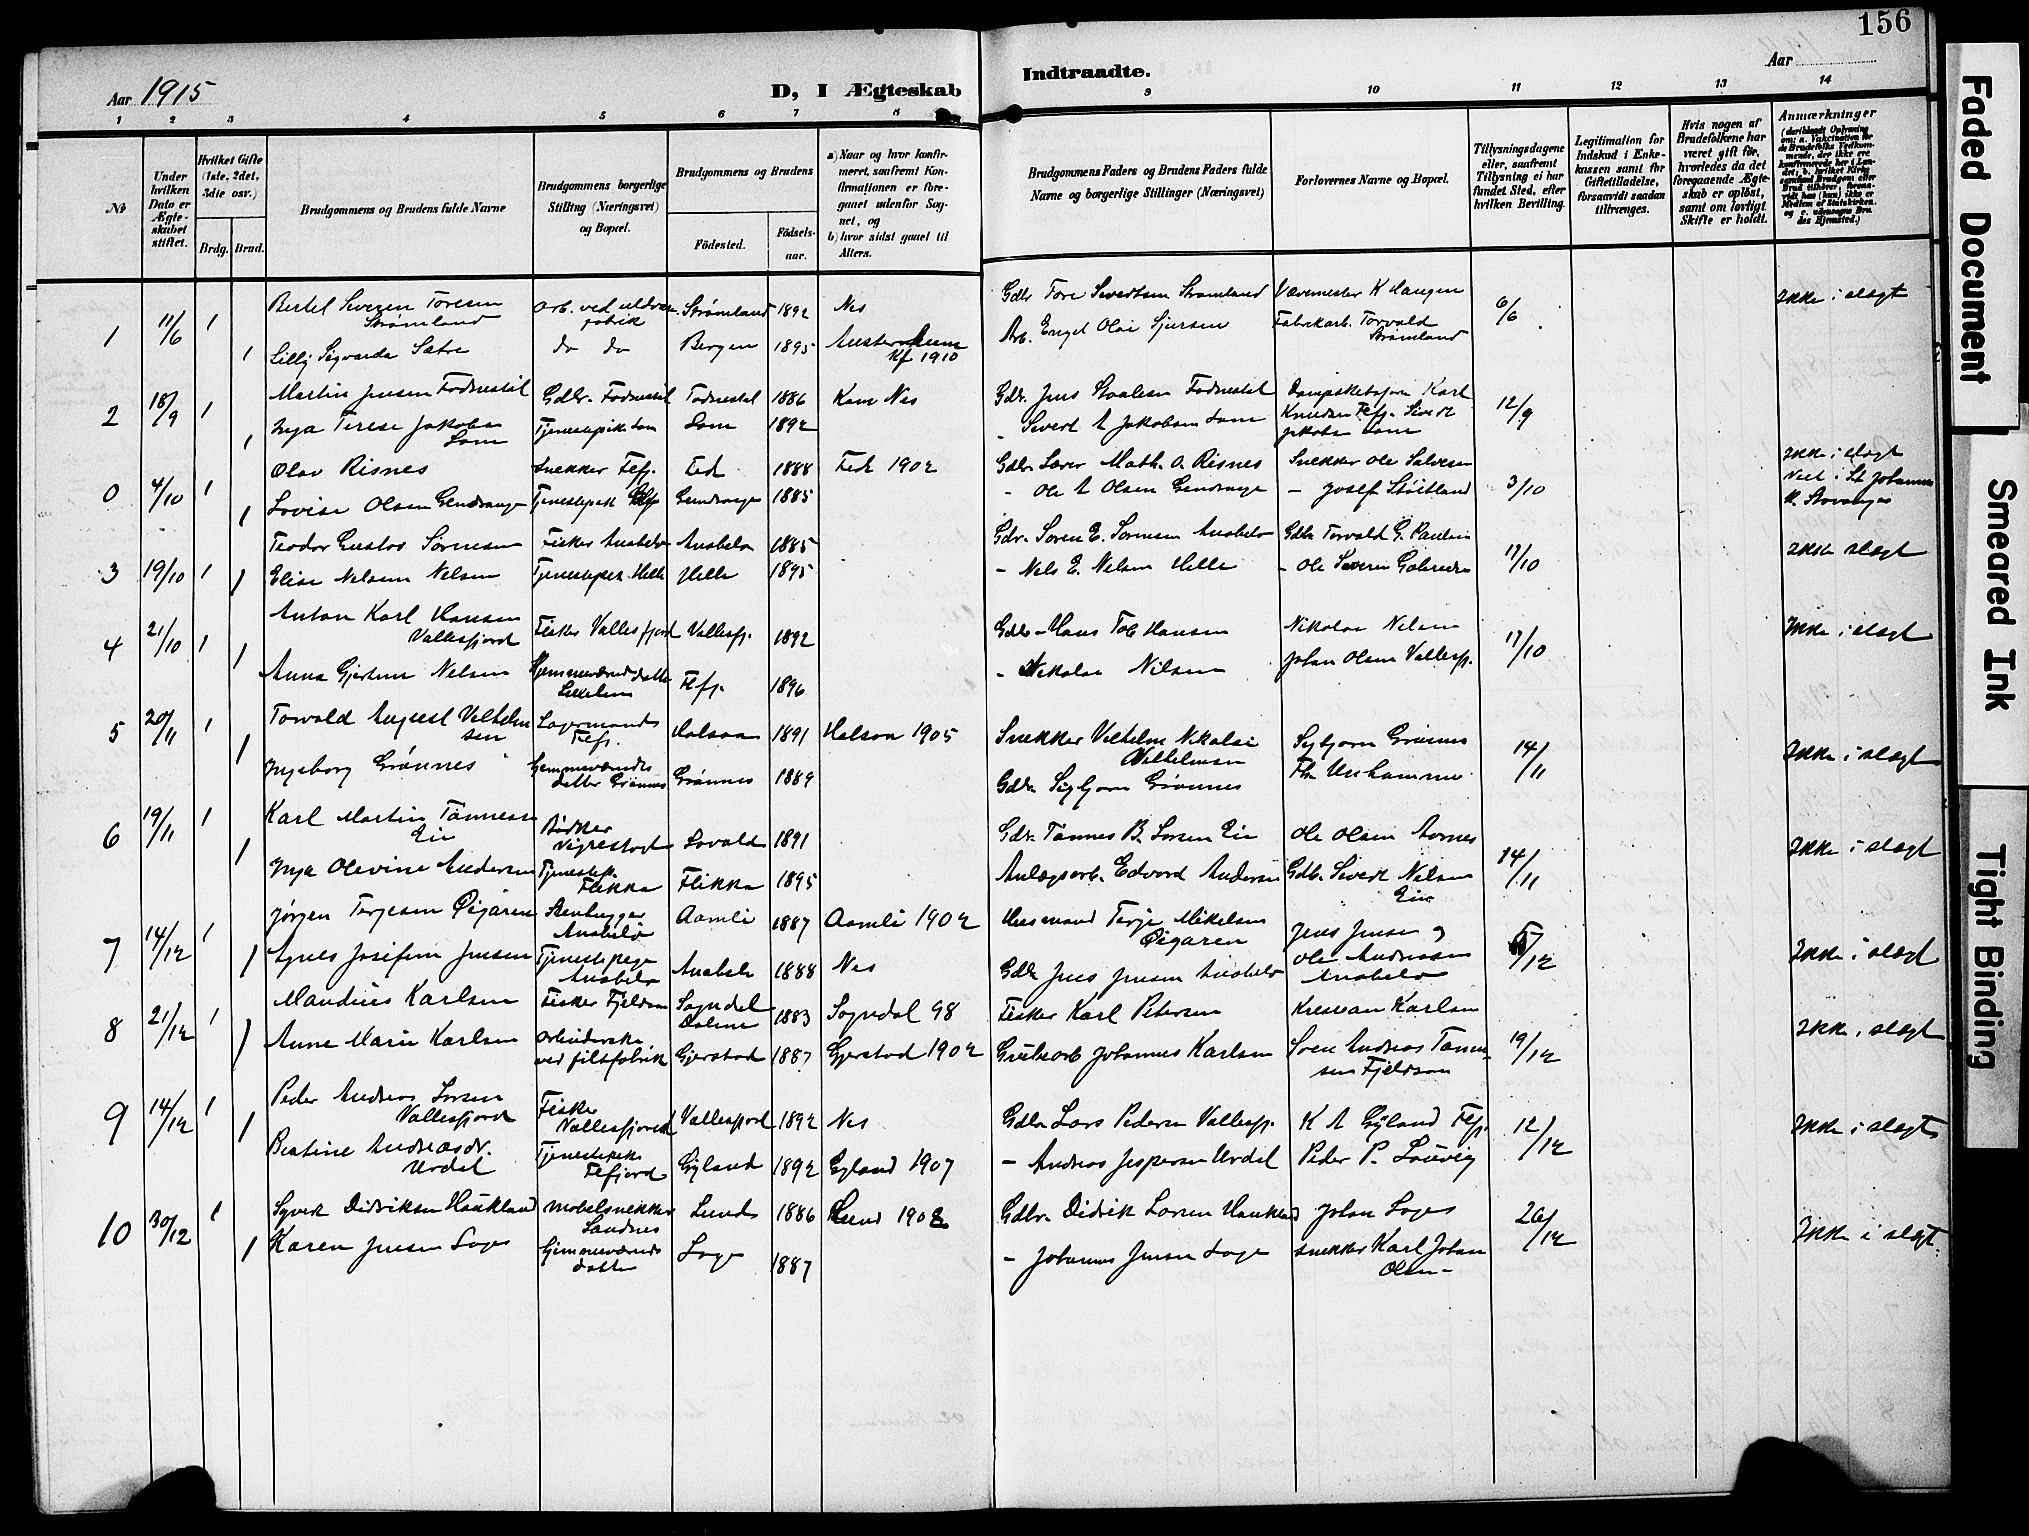 156
Aar 1915
D, I Ægteskab
Indtraadte.
Aar
1 2 3 4 5 6 7 8 9 10 11 12 13 14
No
Under hvilken Dato er Ægteskabet stiftet.
Hvilket Gifte (1ste, 2det, 3die osv.)
Brdg. Brud.
Brudgommens og Brudens fulde Navne
Brudgommens borgerlige Stilling (Næringsvei) og Bopæl.
Brudgommens og Brudens
Födested.
Födselsaar.
a) Naar og hvor konfirmeret, saafremt Konfirmationen er foregaaet udenfor Sognet, og
b) hvor sidst gaaet til Alters.
Brudgommens Faders og Brudens Faders fulde Navne og borgerlige Stillinger (Næringsvei)
Forlovernes Navne og Bopæl.
Tillysningsdagene eller, saafremt Tillysning ei har fundet Sted, efter hvilken Bevilling.
Legitimation for Indskud i Enkekassen samt for Giftetilladelse, forsaavidt saadan tiltrænges.
Hvis nogen af Brudefolkene har været gift för, hvorledes da det foregaaende Ægteskab er oplöst, samt om lovligt Skifte er holdt.
Anmærkninger
1 11/6 1 Bertel Severin Toresen Strømland Arb. ved uldvarefabrik Strømland 1892 Nes Gdbr Tore Severtsen Strømland Vævemester K Haugen 6/6 Ikke i slægt
1 Lilly Sigvarda Sætre do do Bergen 1895 Kf 1910 Arb. Engel Olai Sjursen Fabrikarb. Torvald Strømland
2 18/9 1 Martin Jensen Fodnestøl Gdbr. Fodnestøl Fodnestøl 1886 Kom Nes Gdbr. Jens Fodnestøl Karl Knudsen Flefj.
1 Inga Terese Jakobsen Lom Tjenestepike Lom Lom 1892 - Severt A Jakobsen Lom Severt Jakobsen Lom 12/9
0 4/10 1 Olav Risnes Snekker Flefj. Fed 1888 Fede 1902 Gdbr. Math. O. Risnes Snekker Ole Salvesen 3/10 Ikke i slægt
1 Lovise Olsen Gendrange Tjenestepik Flefj Gendrange 1885 - Ole A Olsen Gendrange - Josef Stöitland Viet i St Johannes K. Stavanger
3 19/10 1 Teodor Gustav Sørensen Fisker Anabelø Anabelø 1885 Gdr. Søren E. Sørensen Anabelø Gdbr Torvald G. Paulsen 17/10 Ikke slægt
1 Elise Nelsen Tjenestepik. Helle Helle 1895 - Nels E. Nelsen Helle - Ole Severin
4 21/10 1 Anton Karl Hansen Vallesfjord Fisker Vallesfjord Vallesfj. 1892 Gdbr - Hans Tob Hansen Nikolai Nelsen 17/10 Ikke i slægt
1 Anna Gjertine Nelsen Hjemmeværende datter Flefj. 1896 - Nikolai Nilsen Johan Olsen Vallesfj.
5 20/11 1 Torvald August Velhelmsen Lagermand Flefj. Halsaa 1891 Halsaa 1905 Snekker Velhelm Nikolai Wilhelmsen Sigbjørn Grønnes 14/11 Ikke i slægt
1 Ingeborg Grønnes Hjemmeværendes datter Grønnes Grønnes 1889 Gdbr. Sigbjørn Grønnes
6 19/11 1 Karl Martin Tønnessen Eie Bødker Vigrestad Lovald 1891 Gdbr. Tønnes B. Larsen Eie Ole Olsen 14/11 Ikke i slægt
1 Inga Olevine Andersen Tjenestepik. Flikka Flikka 1895 Anlægsarb. Edvard Andersen Gdb. Severt Nelsen Eie
7 14/12 1 Jørgen Terjesen Øigaren Stenhugger Anabelø Aamli 1887 Aamli 1902 Husmand Terje Mikelsen Øigaren Jens Jensen og 5/12 Ikke i slægt
1 Agnes Josefine Jensen Tjenestepige Anabelø Anabelø 1888 Nes Gdbr Jens Jensen Anabelø Ole Andreassen Anabelø
8 21/12 1 Mandius Karlsen Fisker Fjeldsaa Sogndal Dalene 1883 Sogndal 98 Fisker Karl Petersen Karlsen 19/12 Ikke i slægt
1 Anne Marie Karlsen Arbeiderske ved filtfabrik Gjerstad 1887 Gjerstad 1902 Grubearb Johannes Karlsen Sven Andreas Tønnesen Fjeldsaa
9 14/12 1 Peder Andreas Larsen Vallesfjord Fisker Vallesfjord Vallesfjord 1892 Nes Gdbr Lars Pedersen Vallesfj. K A Gyland Flefj. 12/12 Ikke i slægt
1 Beatine Andreasdr. Urdal Tjenestepike Flefjord Gyland 1892 Gyland 1907 - Andreas Jespersen Urdal Peder P. Louvig
10 30/12 1 Syvert Didriksen Haukland Møbelsnekker Sandnes Lund 1886 Lund 1902 Gdbr. Didrik Larsen Haukland Johan Loge 26/12 Ikke i slægt.
1 Karen Jensen Loge Hjemmeværende datter Loge 1887 - Johannes Jensen Loge snekker Karl Johan Olsen -
Faded Document
Smeared Ink
Tight Binding